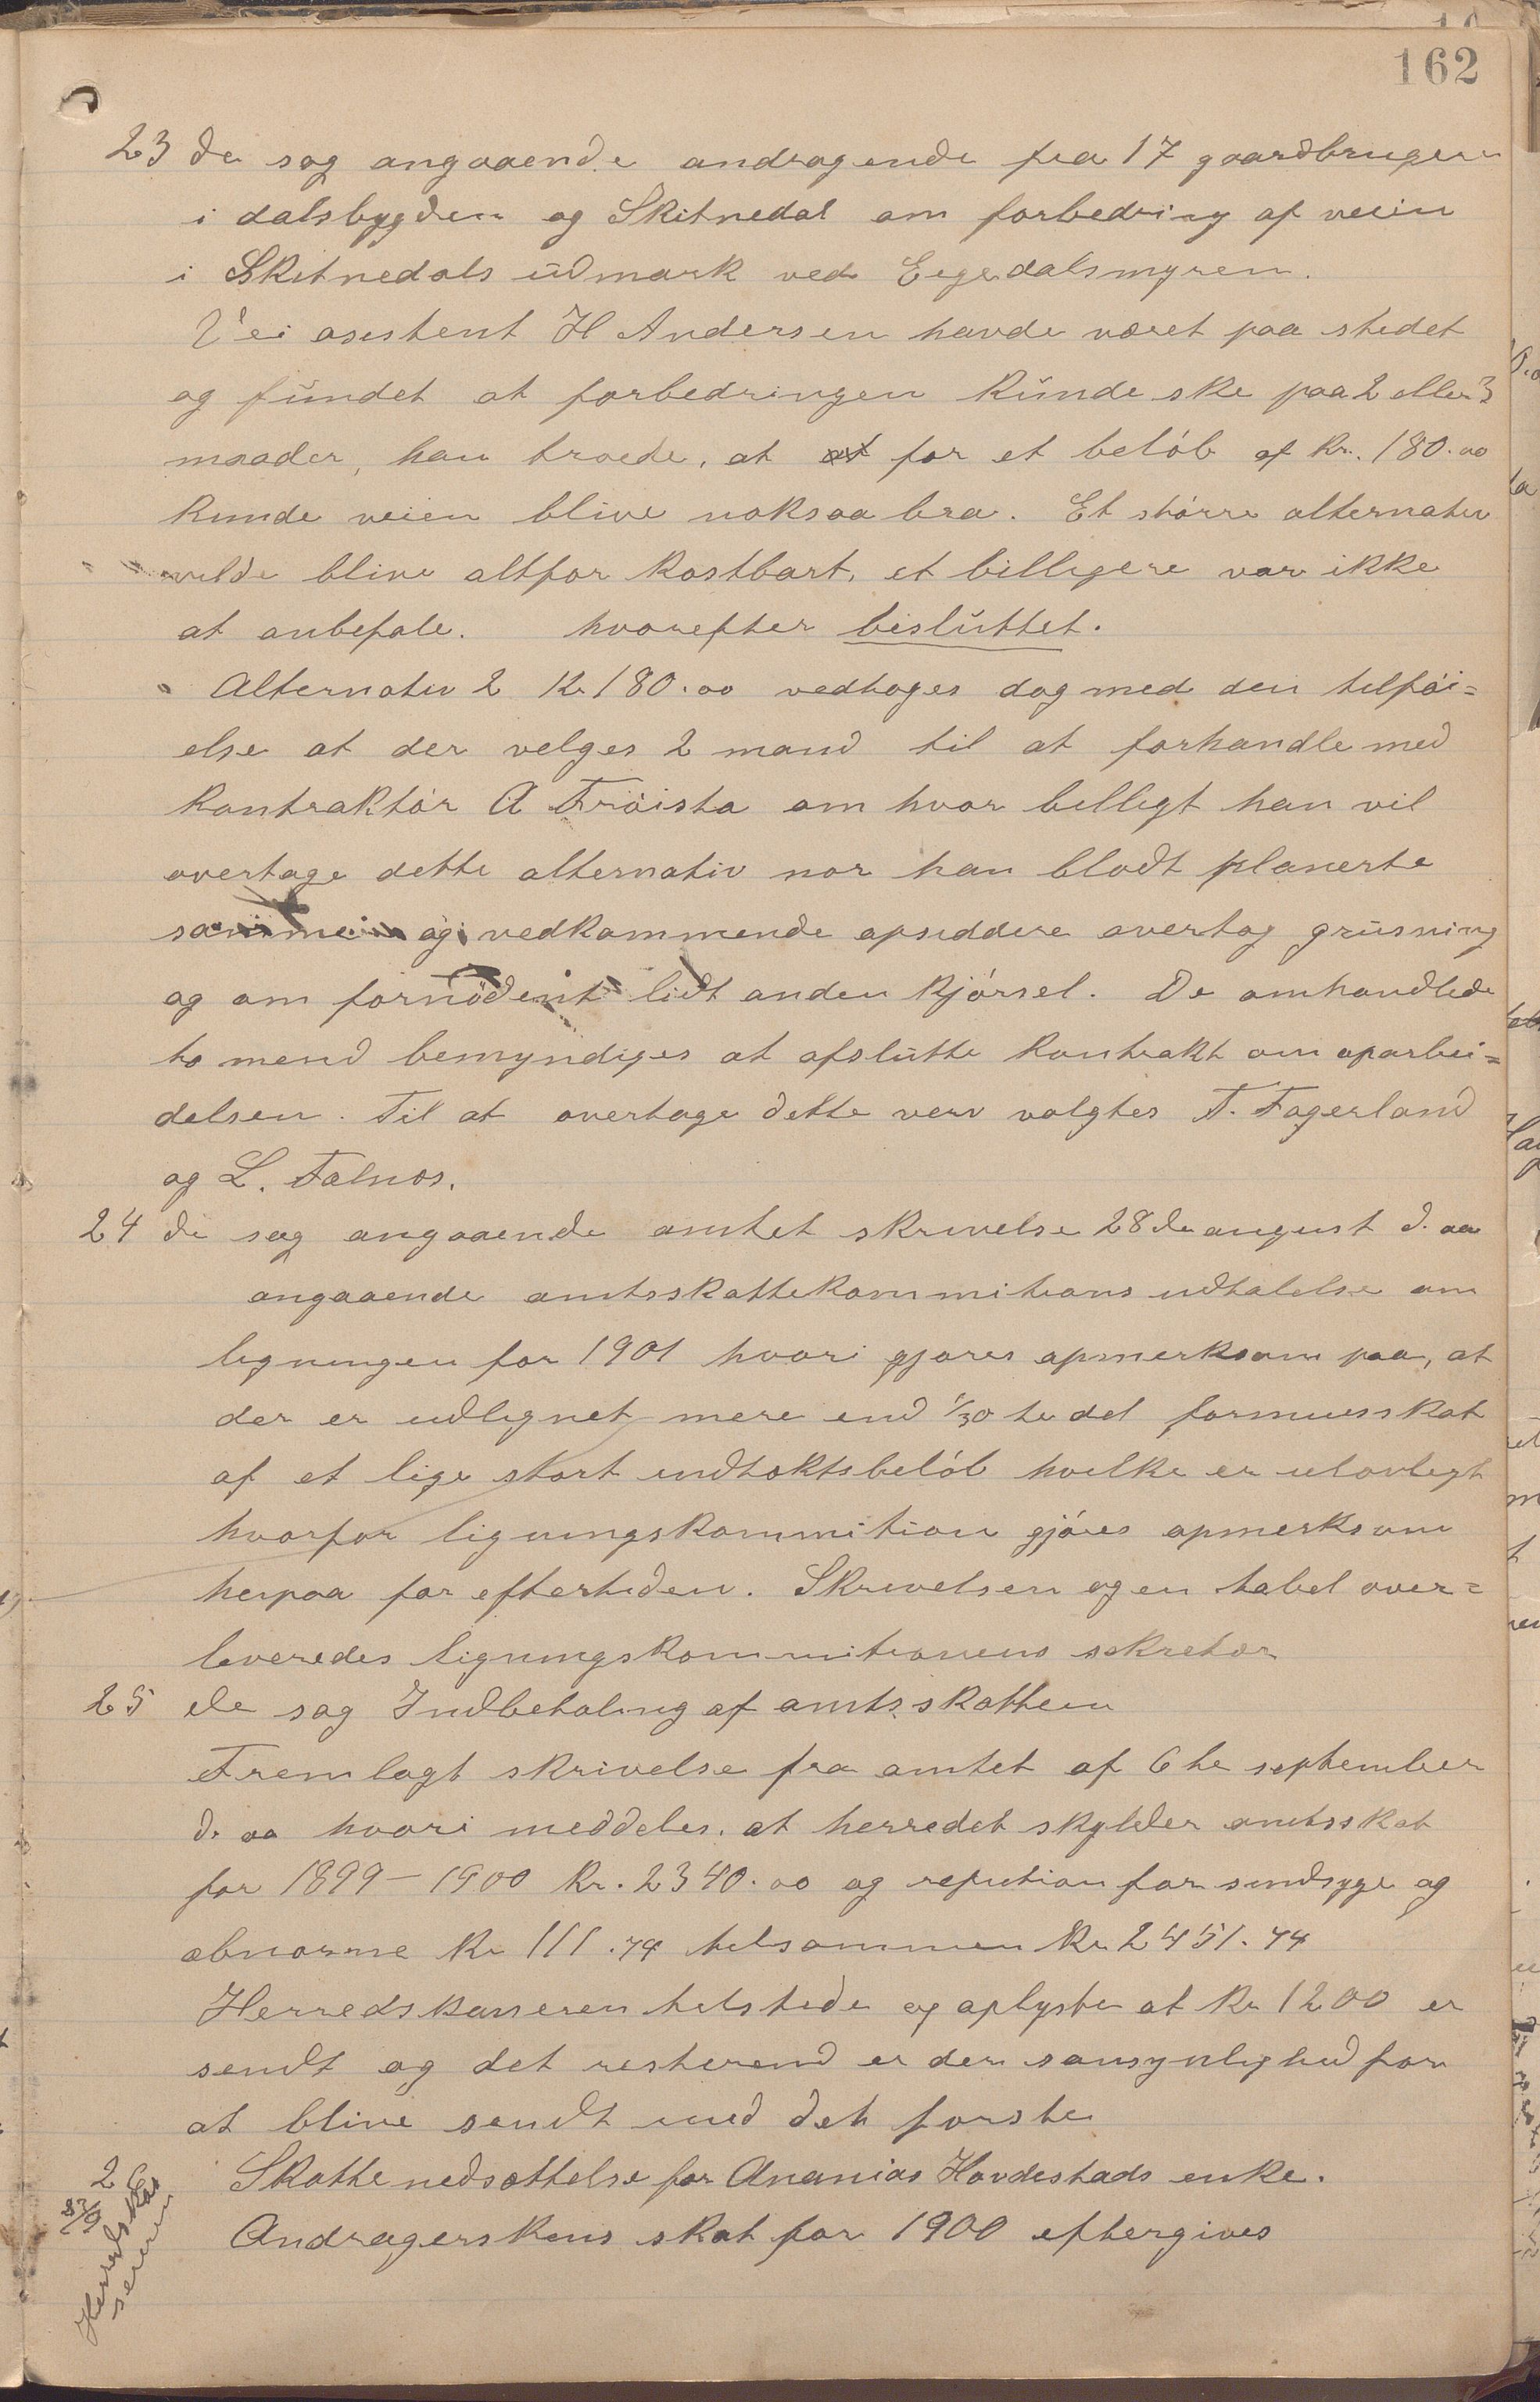 162
23 de sag angaaende andragende fra 17 gaardbrugere
i dalsbygden og Skitnedal om forbedring af veien
i Skitnedals udmark ved Eigedalsmyren.
Vei asistent H Andersen havde været paa stedet
og fundet at forbedringen kunde ske paa 2 eller 3
maader, han troede, at at for et beløb af kr. 180.00
kunde veien blive noksaa bra. Et større alternativ
vilde blive altfor kostbart, et billigere var ikke
at anbefale. hvorefter besluttet.
Alternativ 2 Kr 180.00 vedtoges dog med den tilføi=
else at der velges 2 mand til at forhandle med
kontraktør A Frøista om hvor billigt han vil
overtage dette alternativ nor han blodt planerte
samme og vedkommende opsiddere overtog grusning
og om fornødent lidt anden kjørsel. De omhandlede
to mend bemyndiges at afslutte kontrakt om oparbei=
delsen. Til at overtage dette verv valgtes T. Fagerland
og L. Falnos.
24 de sag angaaende amtet skrivelse 28de august d. aa
angaaende amtsskattekommitions udtalelse om
ligningen for 1901 hvori gjøres opmerksom paa, at
der er udlignet mere end 1/30 te del formuesskat
af et lige stort indtoktsbeløb hvilke er ulovlegt
hvorfor ligningskommition gjøres opmerksom
herpaa for eftertiden. Skrivelsen og en tabel over=
leveredes ligningskommitionens sekretær
25 de sag Indbetaling af amtsskatten
Fremlagt skrivelse fra amtet af 6te september
d. aa hvori meddeles. at herredet skylder amtsskat
for 1899-1900 Kr. 2340.00 og refution for sindsyge og
abnorme Kr 111.74 tilsammen Kr 2451.74
Herredskasseren tilstede og oplyste at Kr 1200 er
sendt og det resterend er der sansynlighed for
at blive sendt med det første
26 Skattenedsættelse for Ananias Hovdestads enke.
Andragerskens skat for 1900 eftergives
23/9
Herredskas
seren